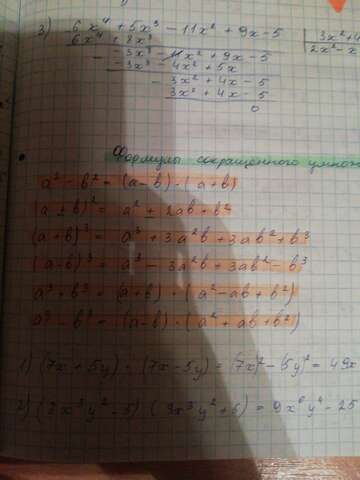 3) 6x⁴ + 5x³ - 11x² + 9x - 5 | 3x² + 4
6x⁴ + 8x³ | 2x² - x
- 3x³ - 11x² + 9x - 5
- 3x³ - 4x² + 5x
3x² + 4x - 5
3x² + 4x - 5
0
Формулы сокращённого умнож
a² - b² = (a - b) · (a + b)
(a ± b)² = a² ± 2ab + b²
(a + b)³ = a³ + 3a²b + 3ab² + b³
(a - b)³ = a³ - 3a²b + 3ab² - b³
a³ + b³ = (a + b) · (a² - ab + b²)
a³ - b³ = (a - b) · (a² + ab + b²)
1) (7x + 5y) · (7x - 5y) = (7x)² - (5y)² = 49x
2) (3x³y² - 5) (3x³y² + 5) = 9x⁶y⁴ - 25